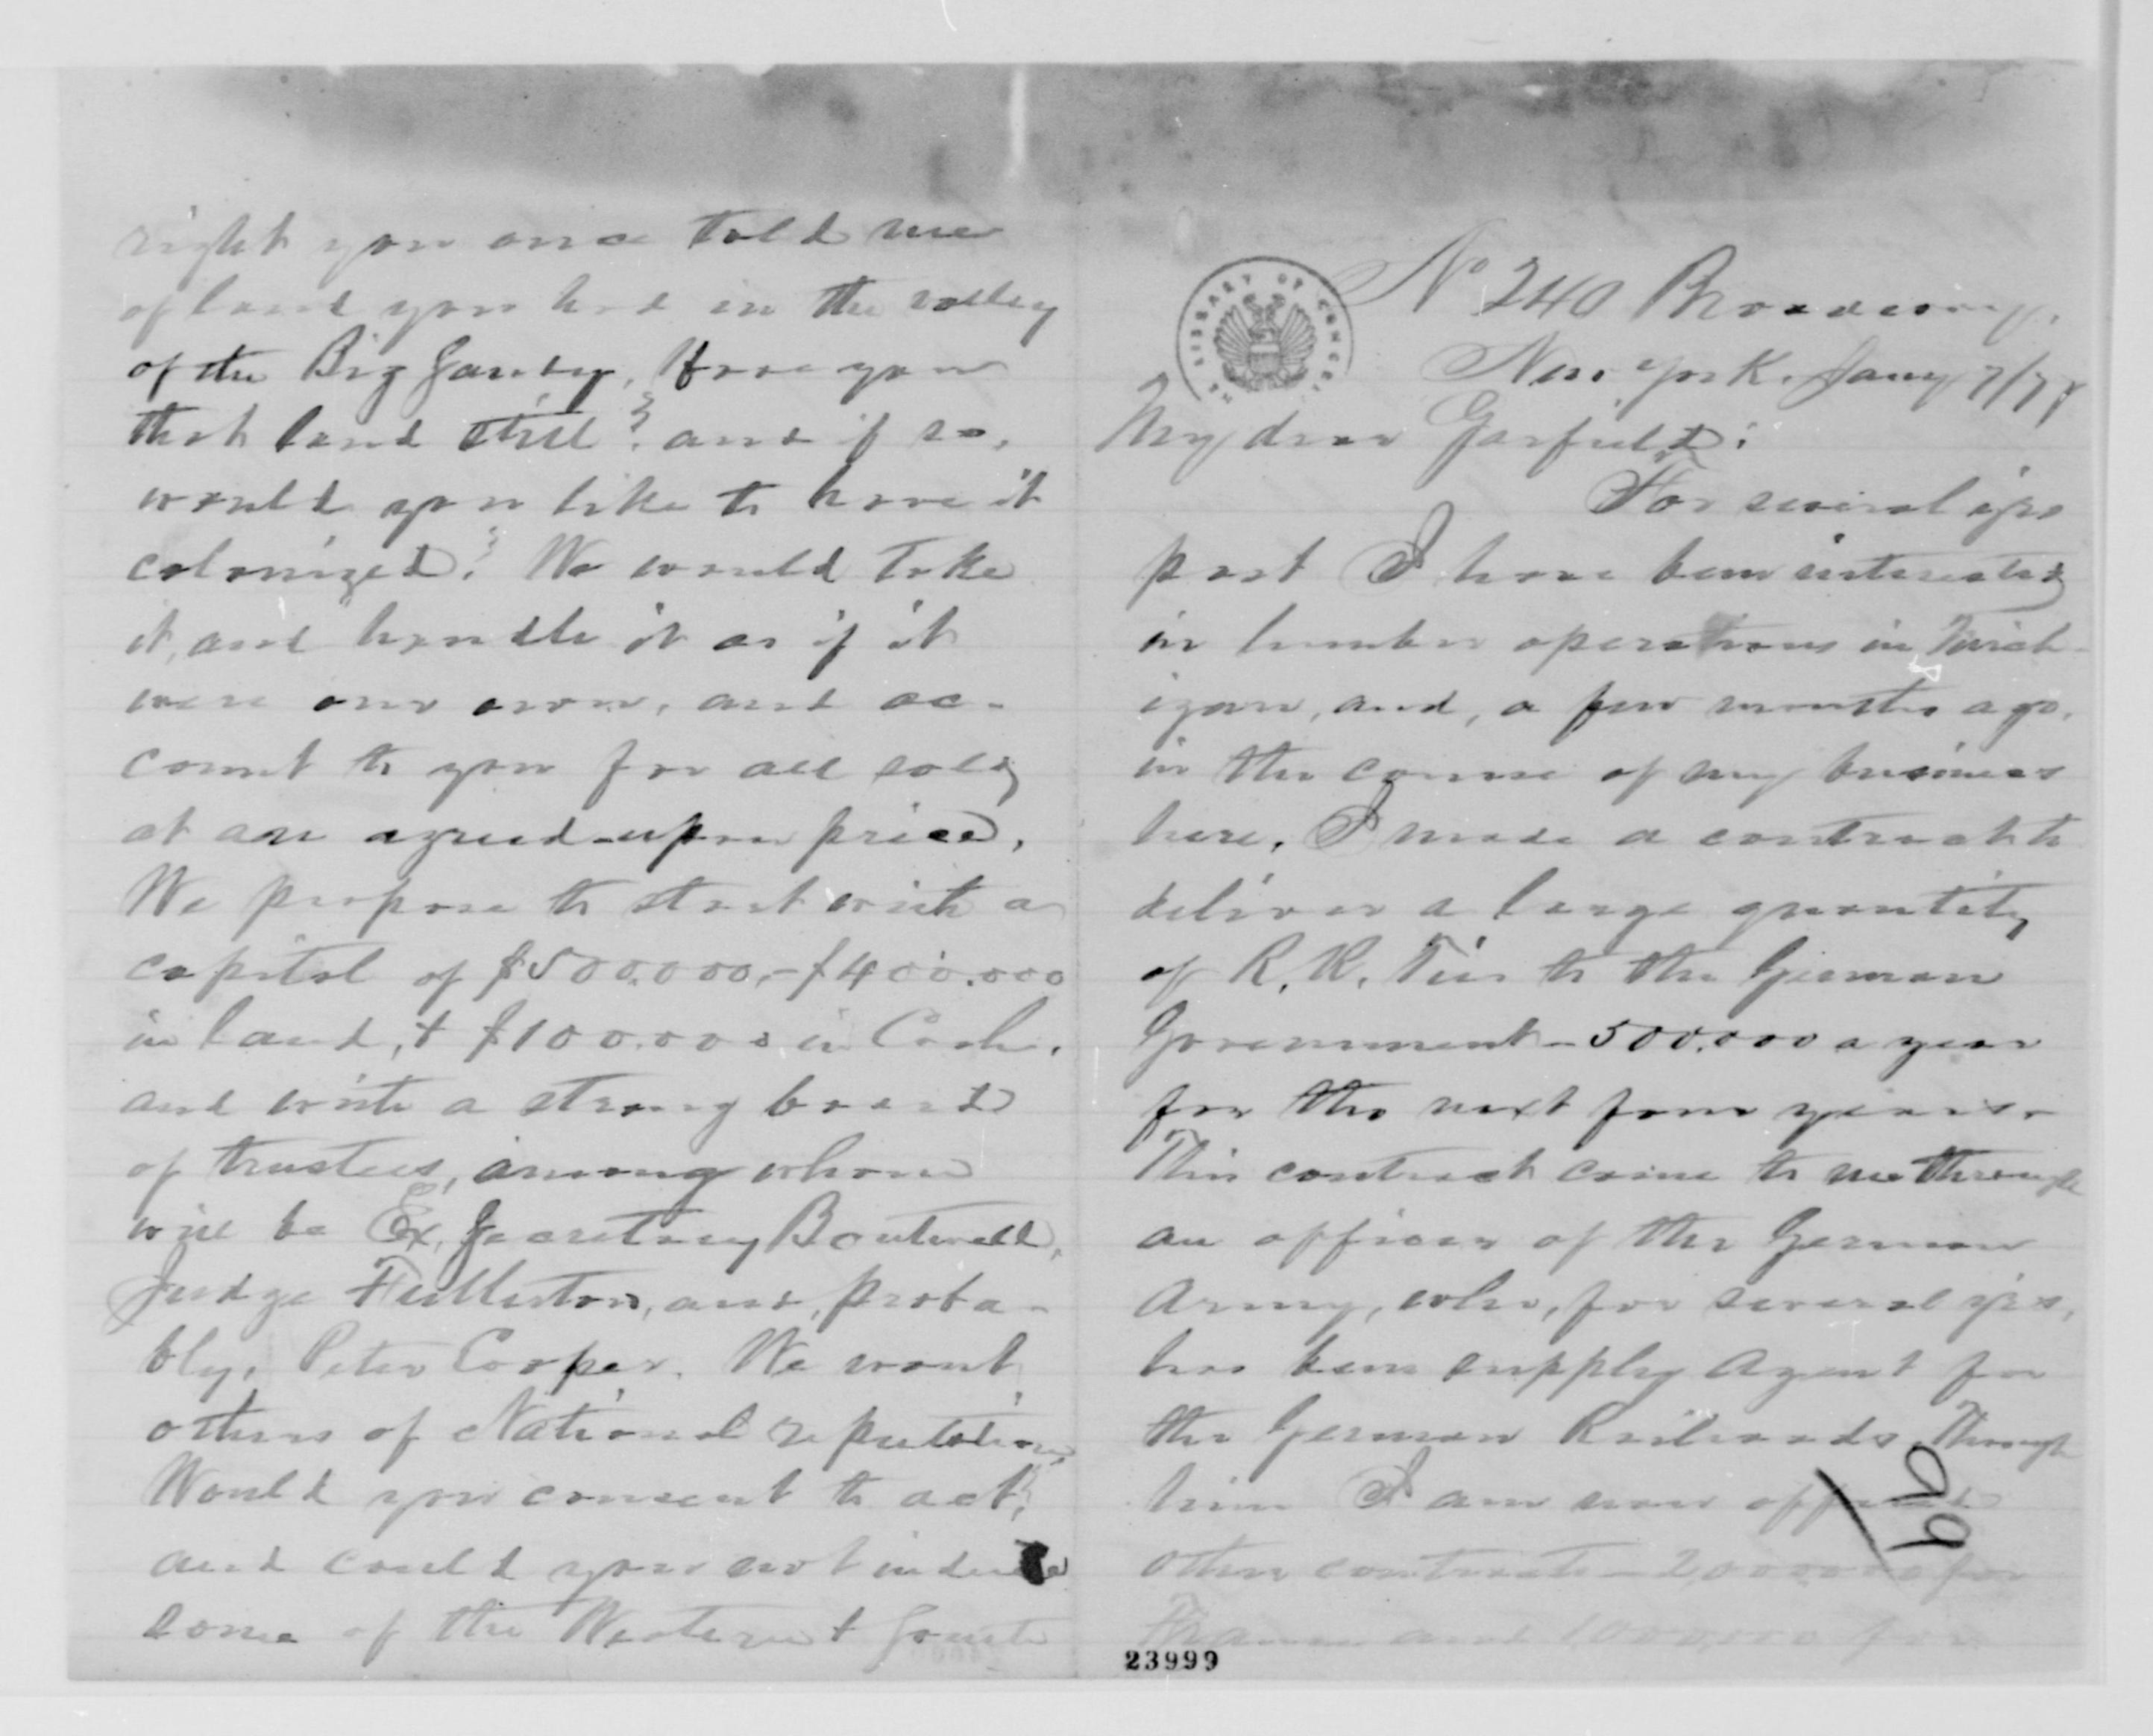 right you once told me
of land you had in the valley
of the Big Sandy. Have you
that land still? and if so,
would you like to have it
colonized? We would take
it, and handle it as if it
were our own, and ac-
count to you for all sold
at an agreed-upon price.
We propose to start with a
capital of $500.000,-$400.000
in land, & $100.000 in Cash,
and with a strong board
of trustees, among whom
will be Ex. Secretary Boutwell,
Judge Fullerton, and, proba-
bly, Peter Cooper. We want
others of National reputation.
Would you consent to act,
and could you not induce
some of the Western & South
LIBRARY OF CONGRESS
No 240 Broadway.
New York. Jany 7/78
My dear Garfield:
For several yrs
past I have been interested
in lumber operations in Mich-
igan, and, a few months ago,
in the course of my business
here, I made a contract to
deliver a large quantity
of R. R. Ties to the German
Government - 500.000 a year
for the next four years.
This contract came to me through
an officer of the German
Army, who, for several yrs,
has been supply Agent for
the German Railroads. Through
him I am now offered
other contracts - 2,000000 for
France and 1000,000 for
99
23999